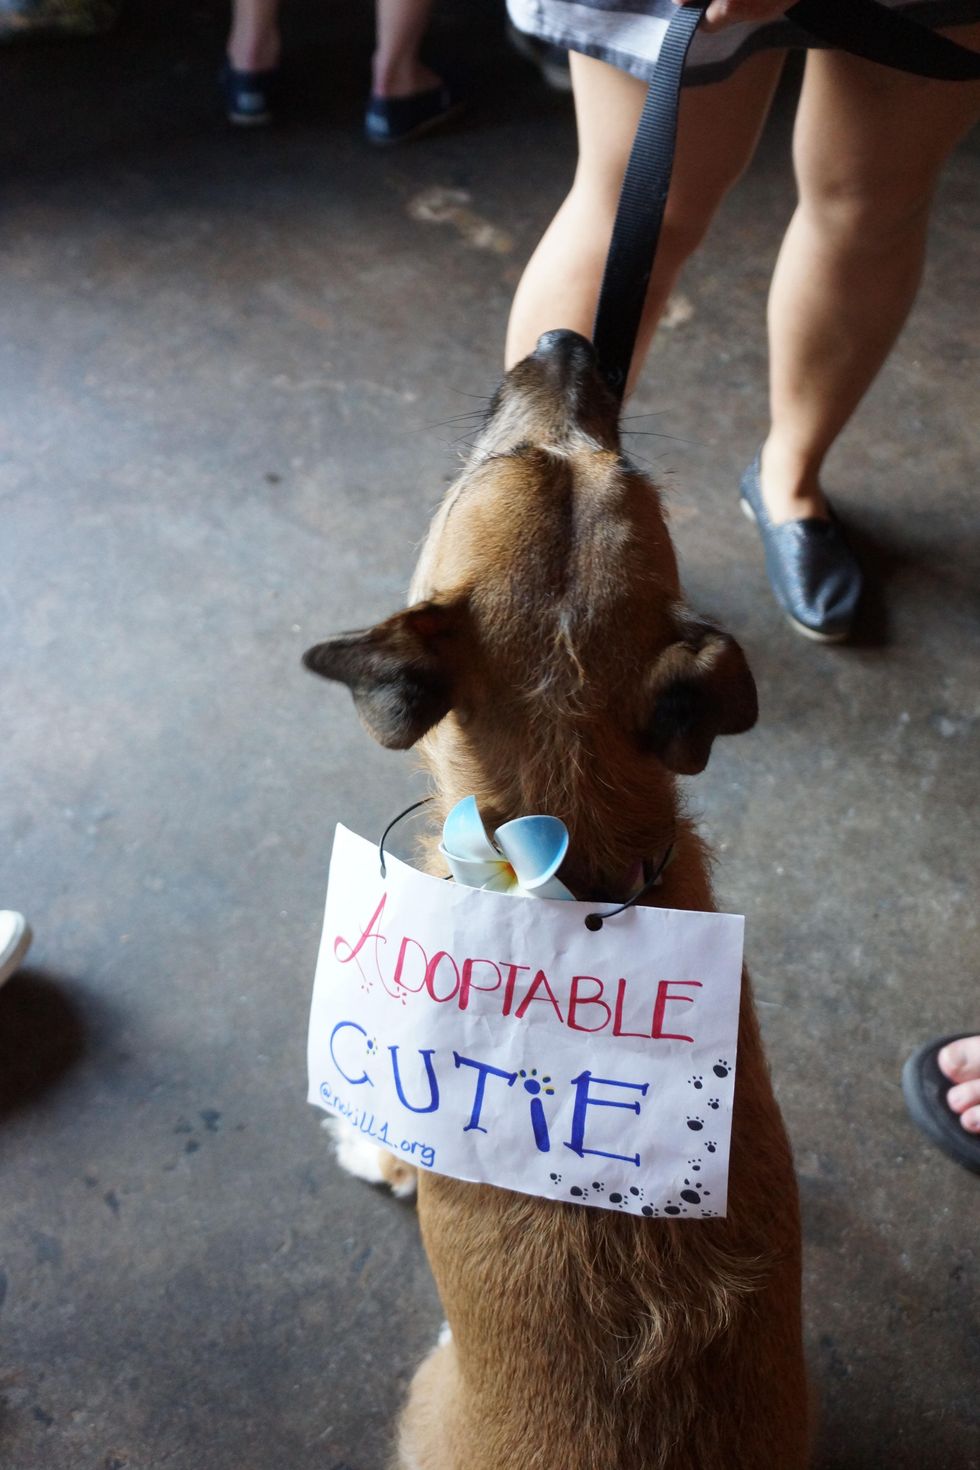 ADOPTABLE
CUTiE
@nokill1.org